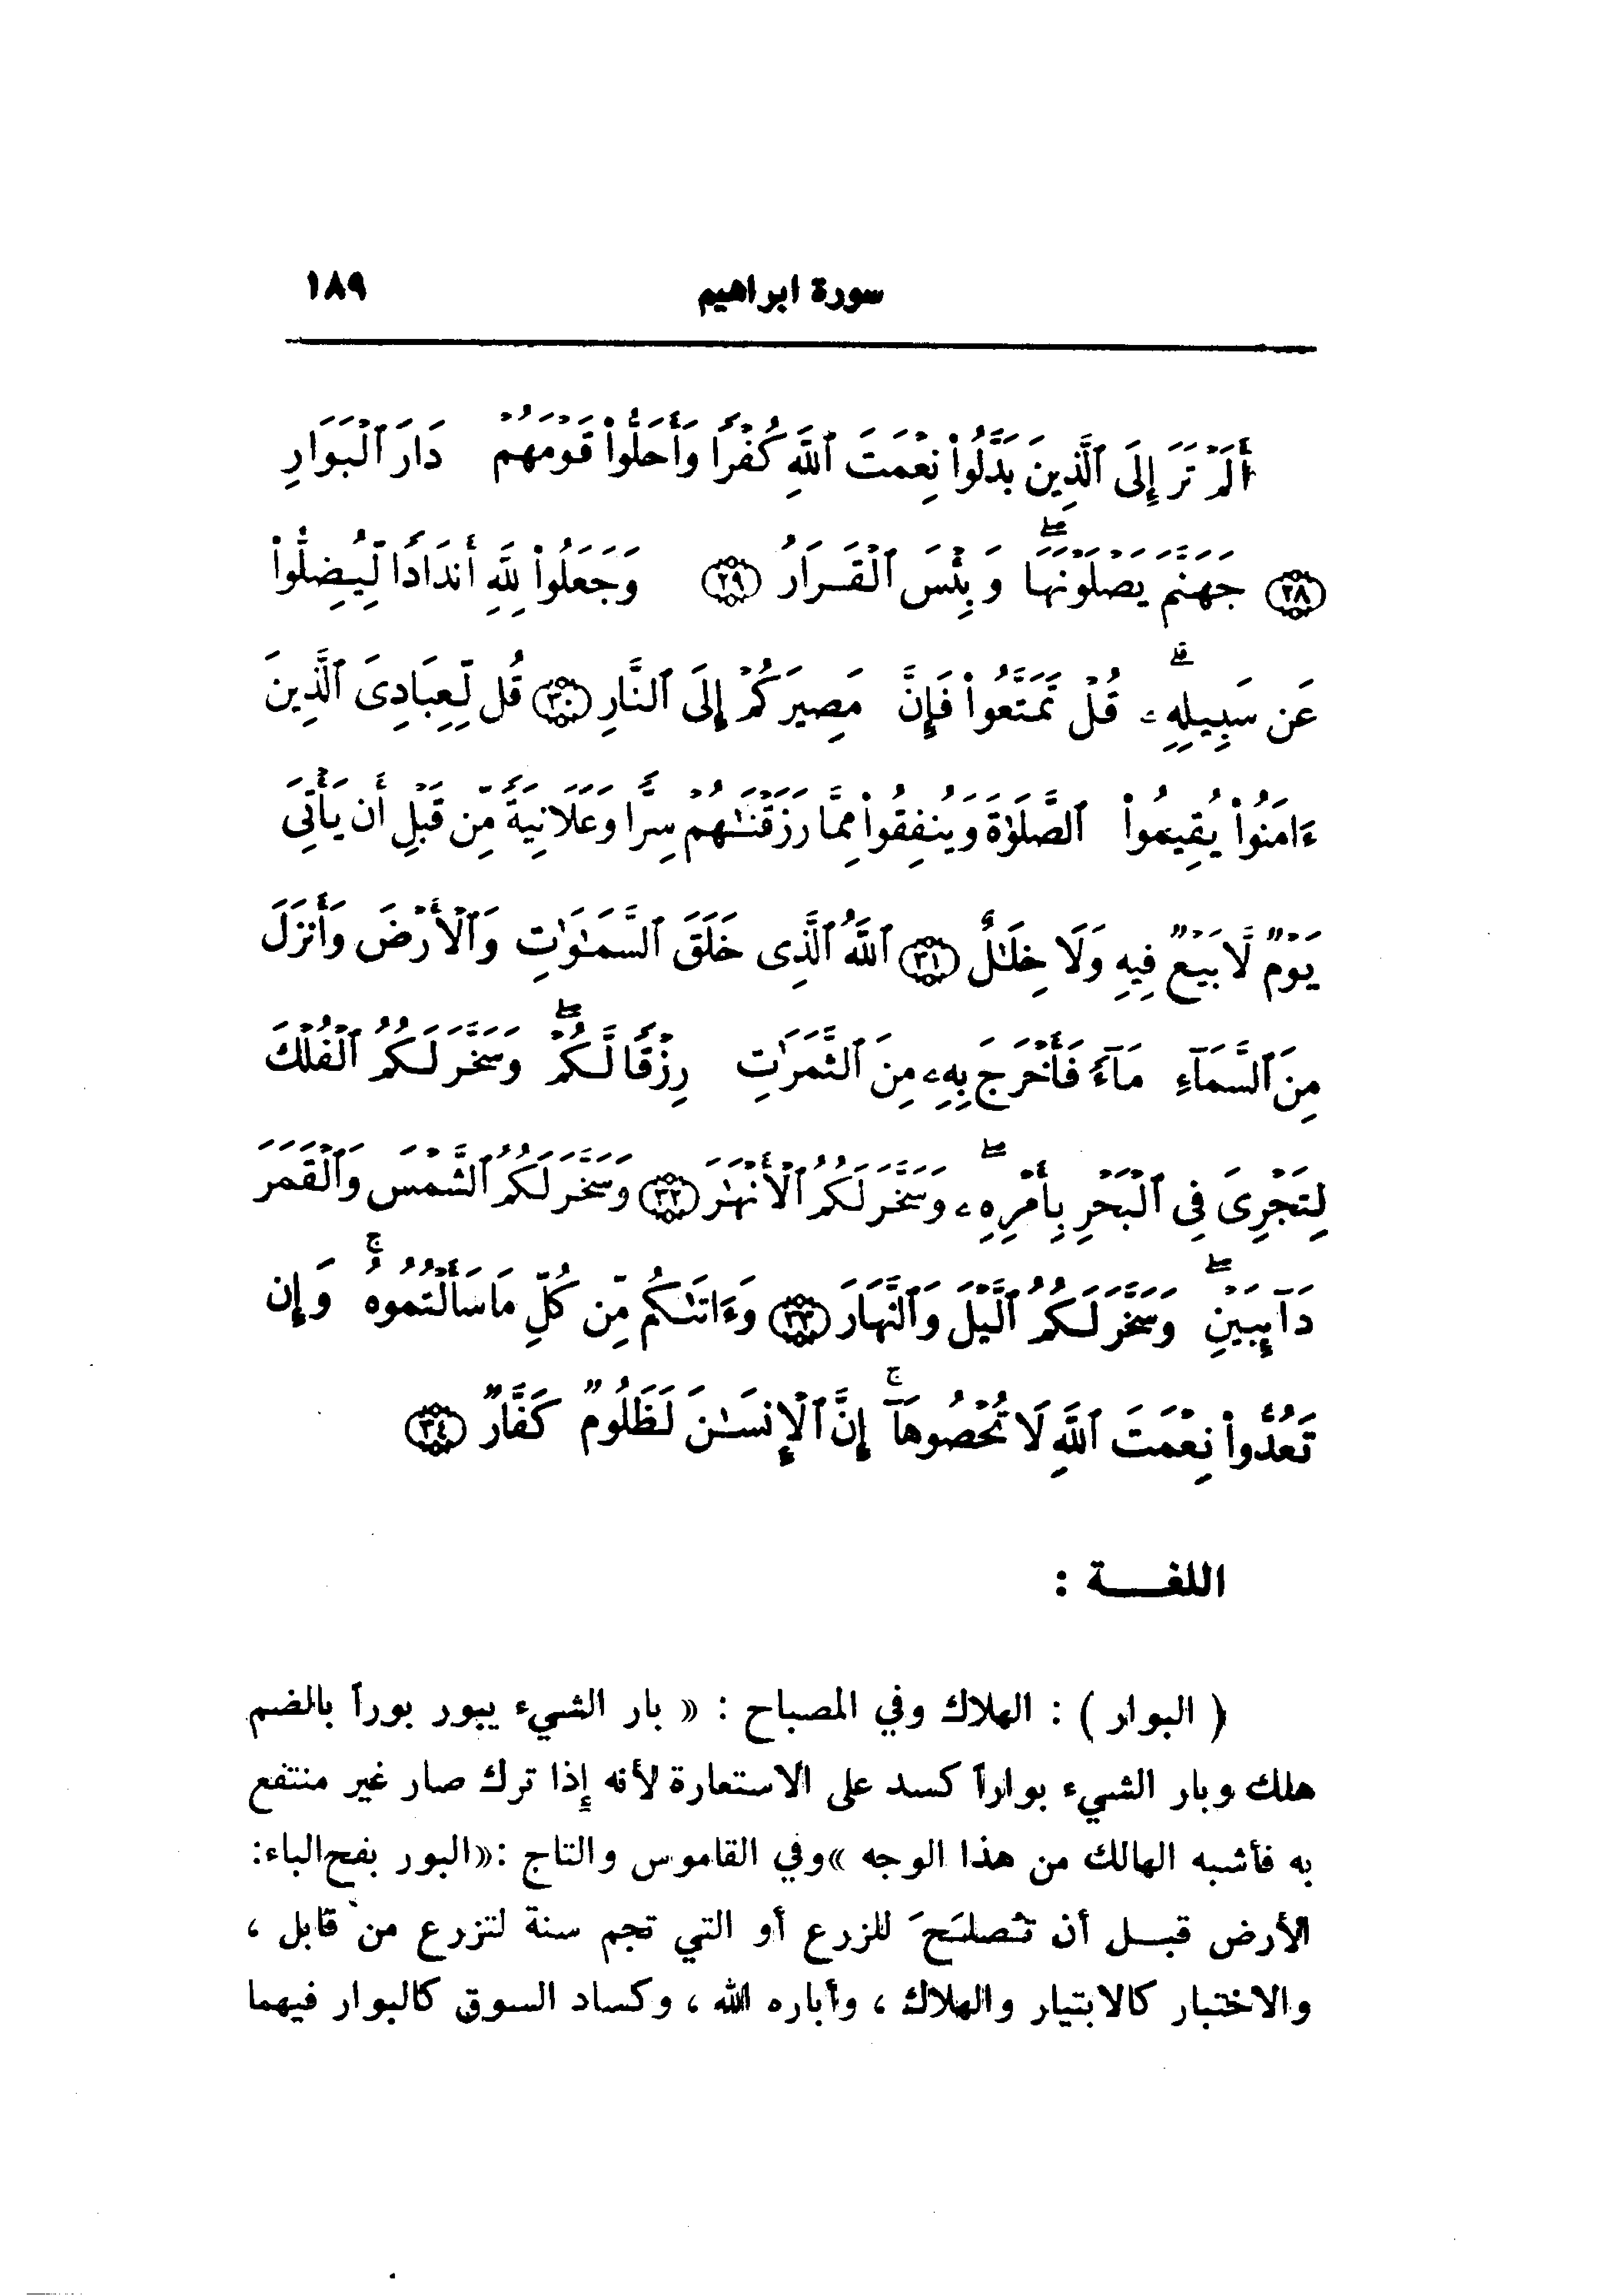 سورة ابراهيم ١٨٩
أَلَمْ تَرَ إِلَى ٱلَّذِينَ بَدَّلُوا۟ نِعْمَتَ ٱللَّهِ كُفْرًا وَأَحَلُّوا۟ قَوْمَهُمْ دَارَ ٱلْبَوَارِ
﴿٢٨﴾ جَهَنَّمَ يَصْلَوْنَهَا ۖ وَبِئْسَ ٱلْقَرَارُ ﴿٢٩﴾ وَجَعَلُوا۟ لِلَّهِ أَندَادًا لِّيُضِلُّوا۟
عَن سَبِيلِهِۦ ۗ قُلْ تَمَتَّعُوا۟ فَإِنَّ مَصِيرَكُمْ إِلَى ٱلنَّارِ ﴿٣٠﴾ قُل لِّعِبَادِىَ ٱلَّذِينَ
ءَامَنُوا۟ يُقِيمُوا۟ ٱلصَّلَوٰةَ وَيُنفِقُوا۟ مِمَّا رَزَقْنَـٰهُمْ سِرًّا وَعَلَانِيَةً مِّن قَبْلِ أَن يَأْتِىَ
يَوْمٌ لَّا بَيْعٌ فِيهِ وَلَا خِلَـٰلٌ ﴿٣١﴾ ٱللَّهُ ٱلَّذِى خَلَقَ ٱلسَّمَـٰوَٰتِ وَٱلْأَرْضَ وَأَنزَلَ
مِنَ ٱلسَّمَآءِ مَآءً فَأَخْرَجَ بِهِۦ مِنَ ٱلثَّمَرَٰتِ رِزْقًا لَّكُمْ ۖ وَسَخَّرَ لَكُمُ ٱلْفُلْكَ
لِتَجْرِىَ فِى ٱلْبَحْرِ بِأَمْرِهِۦ ۖ وَسَخَّرَ لَكُمُ ٱلْأَنْهَـٰرَ ﴿٣٢﴾ وَسَخَّرَ لَكُمُ ٱلشَّمْسَ وَٱلْقَمَرَ
دَآئِبَيْنِ ۖ وَسَخَّرَ لَكُمُ ٱلَّيْلَ وَٱلنَّهَارَ ﴿٣٣﴾ وَءَاتَىٰكُم مِّن كُلِّ مَا سَأَلْتُمُوهُ ۚ وَإِن
تَعُدُّوا۟ نِعْمَتَ ٱللَّهِ لَا تُحْصُوهَآ ۚ إِنَّ ٱلْإِنسَـٰنَ لَظَلُومٌ كَفَّارٌ ﴿٣٤﴾
اللغـــة :
( البوار ) : الهلاك وفي المصباح : « بار الشيء يبور بوراً بالضم
هلك وبار الشيء بواراً كسد على الاستعارة لأنه إذا ترك صار غير منتفع
به فأشبه الهالك من هذا الوجه » وفي القاموس والتاج : « البور بفح الباء:
الأرض قبـل أن تـُصلـَحَ للزرع أو التي تجم سنة لتزرع من قابل ،
والاختبار كالابتيار والهلاك ، وأباره الله ، وكساد السوق كالبوار فيهما